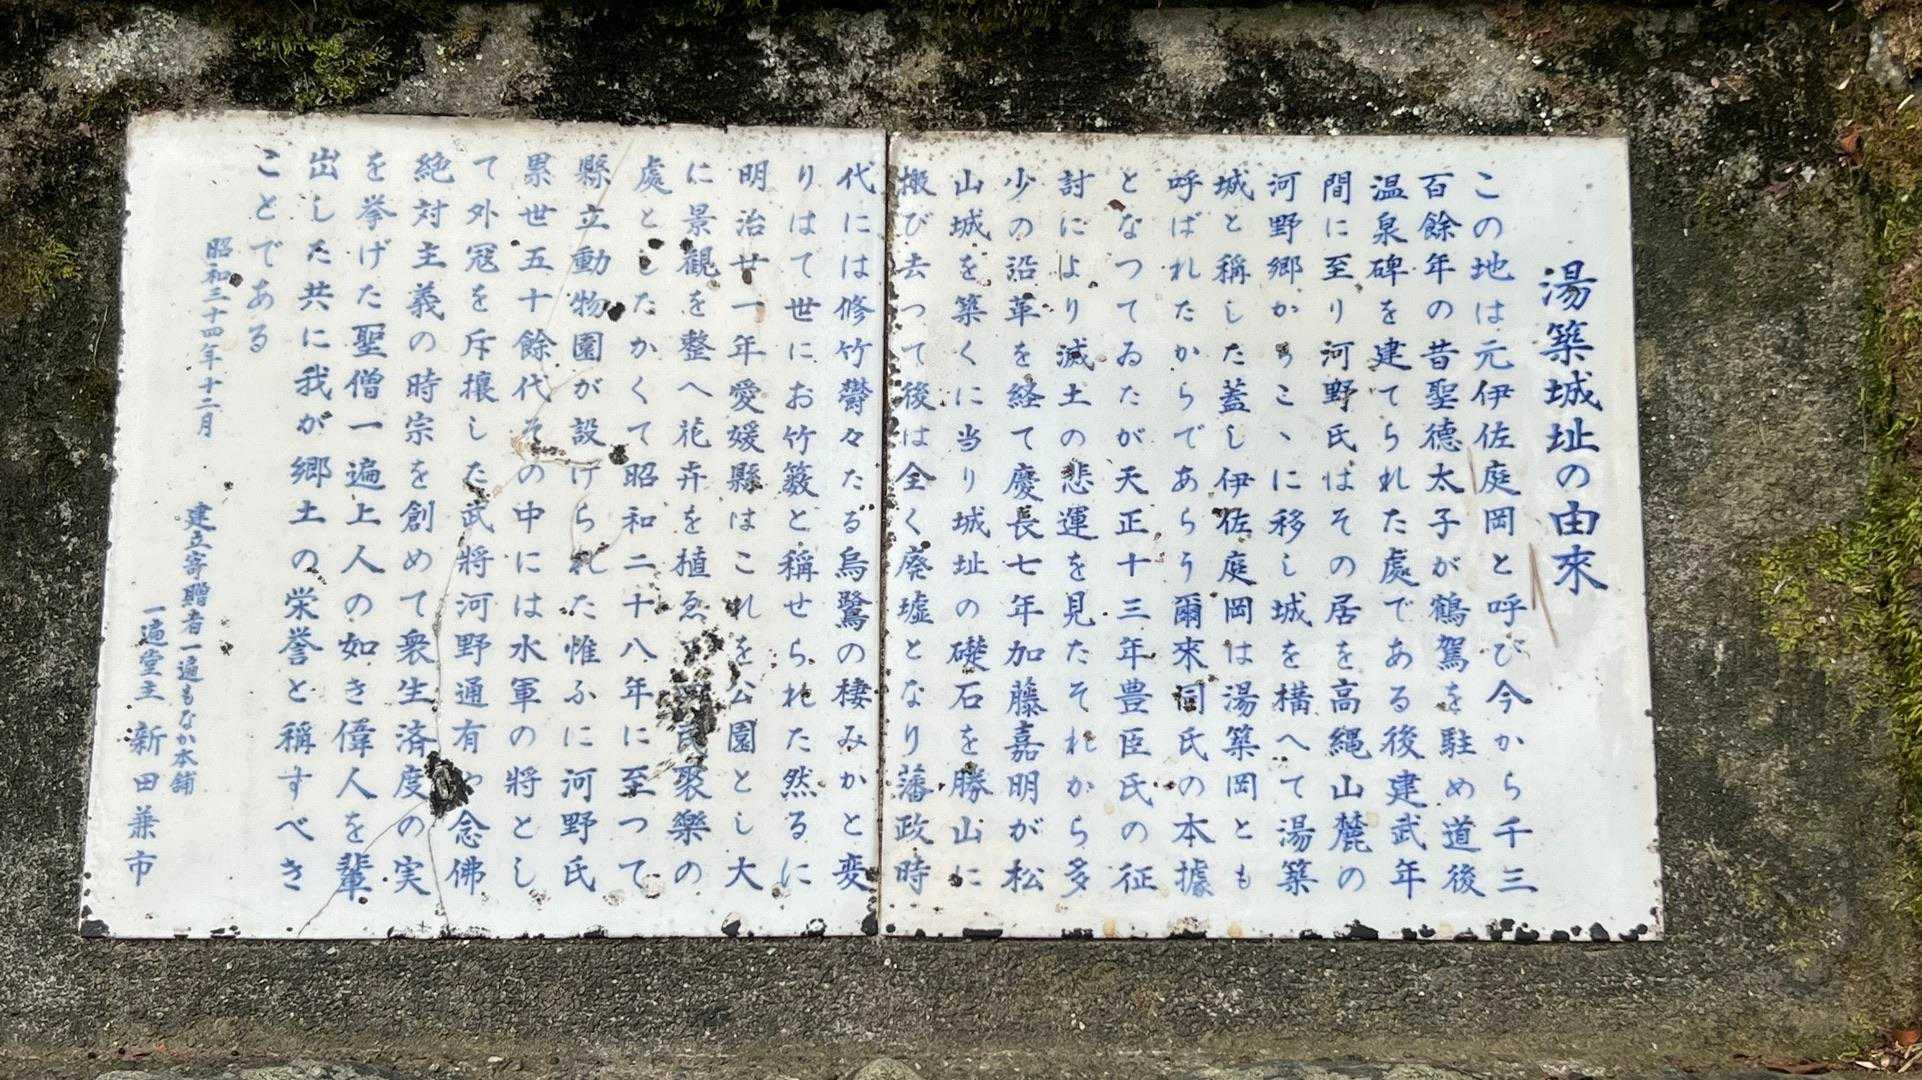 湯築城址の由來
この地は元伊佐庭岡と呼び今から千三
百餘年の昔聖德太子が鶴駕を駐め道後
温泉碑を建てられた處である後建武年
間に至り河野氏はその居を高縄山麓の
河野郷からこゝに移し城を構へて湯築
城と稱した蓋し伊佐庭岡は湯築岡とも
呼ばれたからであらう爾來同氏の本據
となつてゐたが天正十三年豊臣氏の征
討により滅土の悲運を見たそれから多
少の沿革を経て慶長七年加藤嘉明が松
山城を築くに当り城址の礎石を勝山に
搬び去つて後は全く廃墟となり藩政時
代には修竹欝々たる烏鷺の棲みかと変
りはて世にお竹籔と稱せられた然るに
明治廿一年愛媛縣はこれを公園とし大
に景觀を整へ花卉を植ゑ民聚樂の
處としたかくて昭和二十八年に至つて
縣立動物園が設けられた惟ふに河野氏
累世五十餘代その中には水軍の將とし
て外寇を斥攘した武將河野通有や念佛
絶対主義の時宗を創めて衆生済度の実
を挙げた聖僧一遍上人の如き偉人を輩
出した共に我が郷土の栄誉と稱すべき
ことである
昭和三十四年十二月
建立寄贈者一遍もなか本舗
一遍堂主 新田兼市